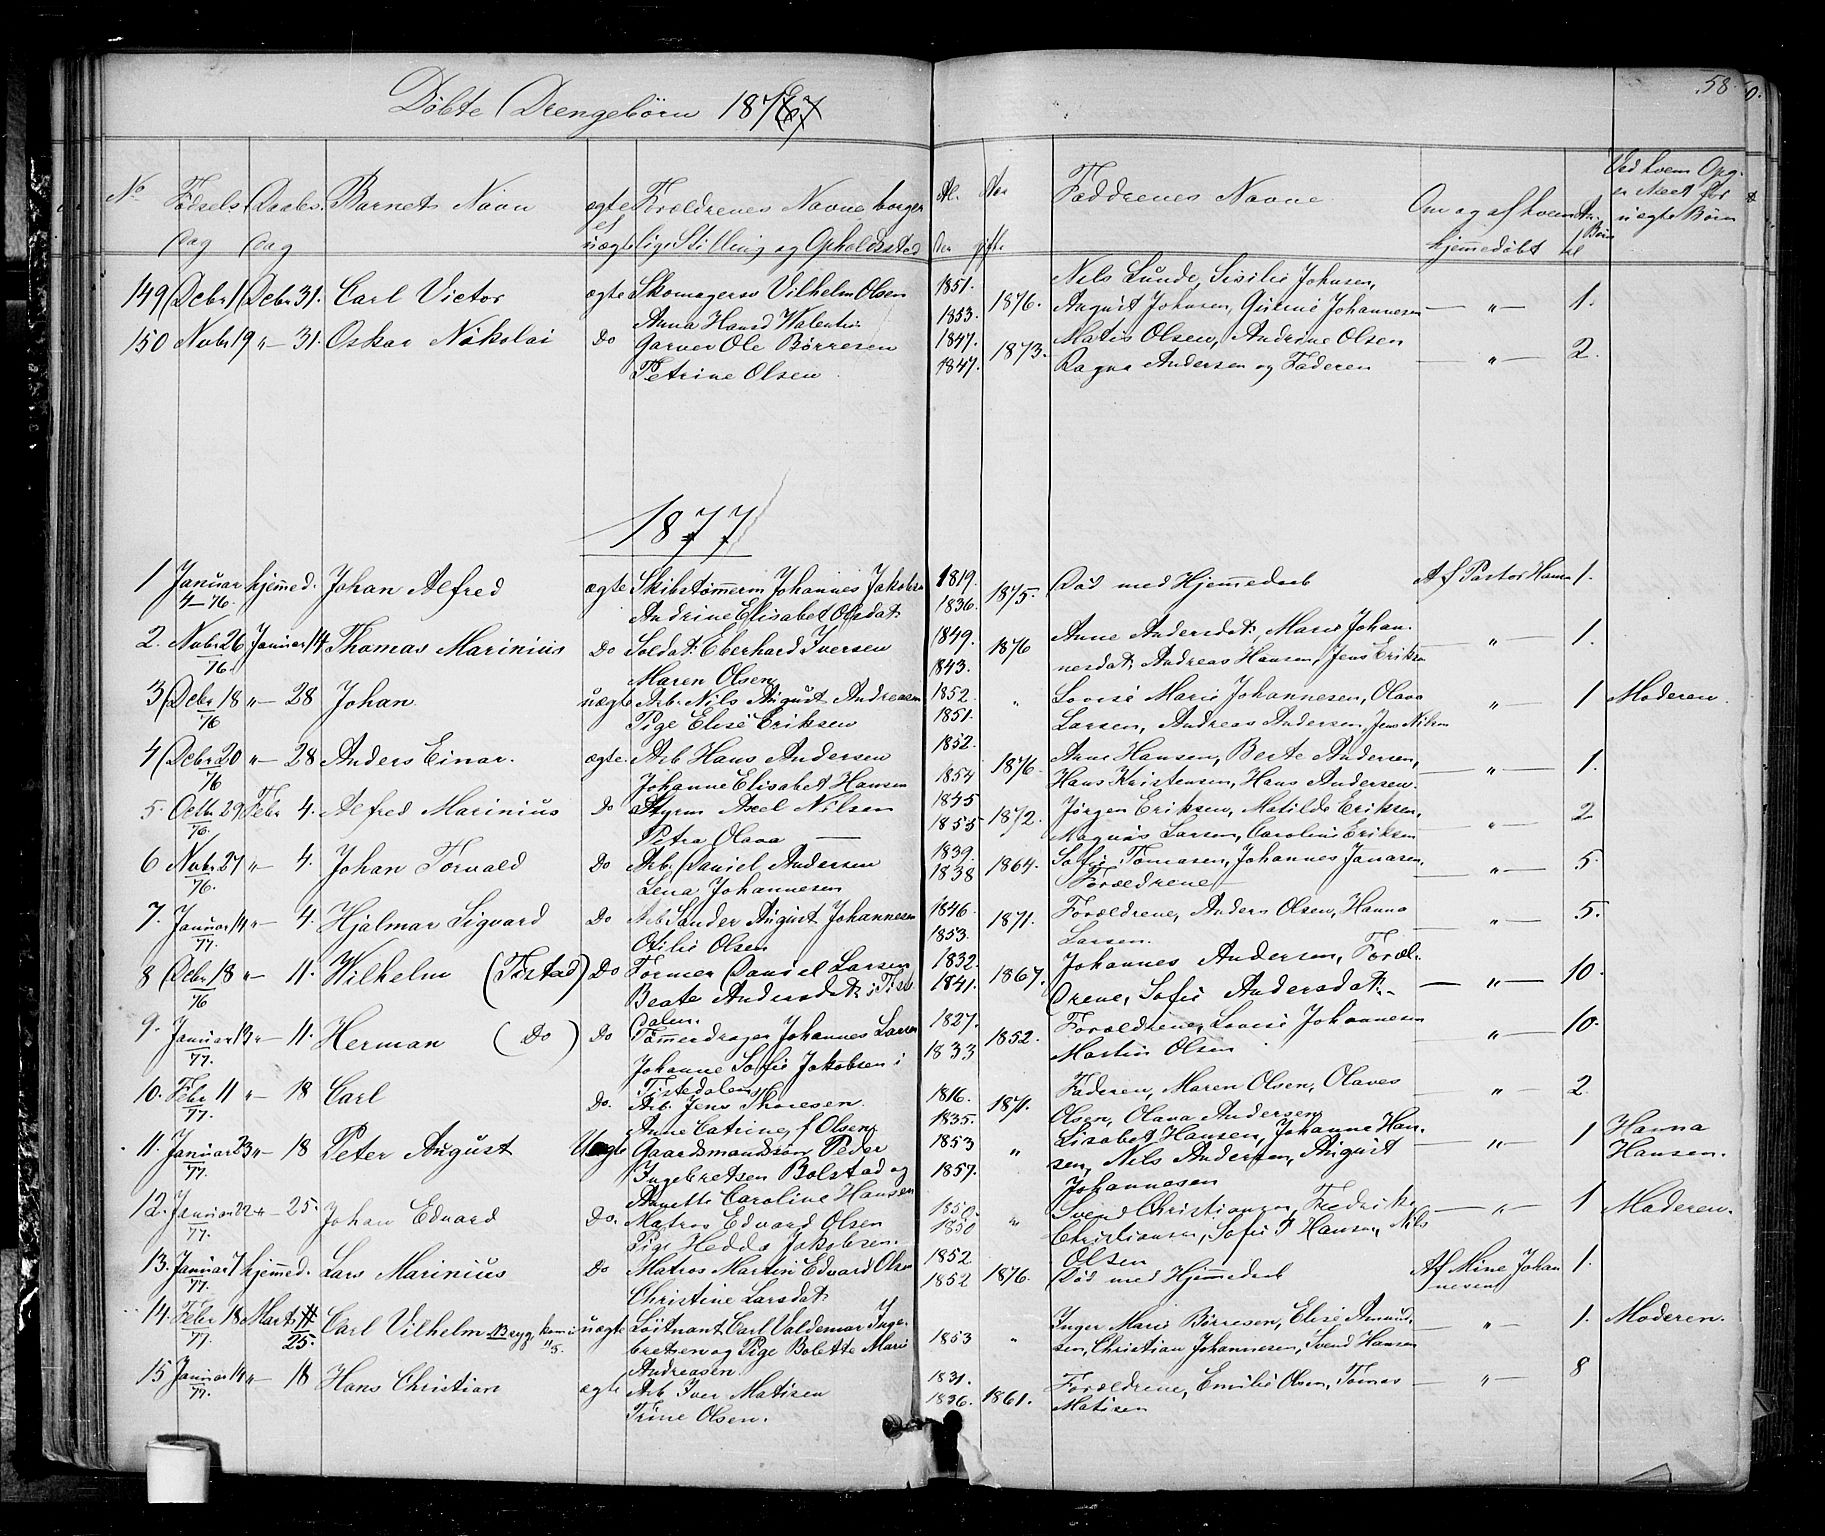 58.
Döbte Drengebörn 1876
No Födsels Daabs Barnets Navn ægte Forældrenes Navne borger Al. Vor Faddrenes Navne Om og af hvem An. Ved hvem Opg-
dag dag uægte lige Stilling og Opholdssted der gifte hjemmedöbt Börn tal uægte Börn
149 Decbr 1 Decbr 31. Carl Victor ægte Skomagersv Vilhelm Olsen 1851. 1876. Nils Lunde, Sisilie Johnsen, — " — 1.
Anna Hansd Walentin 1853. August Johnsen, Gurine Johannesen
150 Novbr 19 " — 31. Oskar Nikolai Do Garver Ole Börresen 1847. 1873. Matis Olsen, Andrine Olsen — " — 2.
Petrine Olsen 1847. Ragna Andersen og Faderen
1877
1 Januar 4—76. hjemmed. Johan Alfred ægte Skibstömmerm Johannes Jakobsen 1819. 1875. Död med Hjemmedaab Af Pastor Hansen 1.
Andrine Elisabet Olsdat. 1836.
2. Novbr 26 76. Januar 14 Thomas Marinius Do Soldat Eberhard Iversen 1849. 1876 Anne Andersdat., Marie Johan- — " — 1.
Maren Olsen 1843. nesdat. Andreas Hansen, Jens Eriksen
3 Decbr 18 76 " — 28 Johan uægte Arb. Nils August Andreasen 1852. " Lovise Marie Johannesen, Olava — " — 1 Moderen.
Pige Elise Eriksen 1851. Larsen, Andreas Andersen, Jens Nilsen
4 Decbr 20 76 " — 28 Anders Einar. ægte. Arb Hans Andersen 1852. 1876. Anne Hansen, Berte Andersen, — " — 1.
Johanne Elisabet Hansen 1854 Hans Kristensen, Hans Andersen.
5. Octbr 29 76. Febr 4. Alfred Marinius Do Styrm Axel Nilsen 1845 1872. Jörgen Eriksen, Matilde Eriksen, — " — 2
Petra Olava — 1855 Magnus Larsen, Caroline Eriksen
6 Novbr 27 76. " — 4. Johan Torvald Do Arb. Daniel Andersen 1839. 1864. Sofie Tomasen, Johannes Jonasen, — " — 5.
Lena Johannesen 1838 Forældrene
7. Januar 14 77. " — 4. Hjalmar Sigvard Do Arb. Sander August Johannesen 1846. 1871. Forældrene, Anders Olsen, Hanna — " — 5.
Otilie Olsen 1853. Larsen.
8 Decbr 18 76 " — 11. Wilhelm (Tistad) Do Former Daniel Larsen 1832. 1867. Johannes Andersen, Foræl- — " — 10.
Beate Andersdat. i Tist- 1841. drene, Sofie Andersdat.
dalen.
9. Januar 13 77. " — 11. Herman (Do) Do Tömmerdrager Johannes Larsen 1827. 1852. Forældrene, Lovise Johannesen — " — 10.
Johanne Sofie Jakobsen i 1833 Martin Olsen
Tistedalen
10. Febr 11 77. " — 18 Carl Do. Arb. Jens Thoresen. 1816. 1871. Faderen, Maren Olsen, Olaves — " — 2.
Anne Catrine f Olsen 1835. Olsen, Olava Andersen
11. Januar 23 77. " — 18 Peter August Uægte Gaardmandssön Peder 1853 " Lisabet Hansen, Johanne Han- — " — 1 Hanna
Ingebretsen Bolstad og 1857. sen, Nils Andersen, August Hansen.
Anette Caroline Hansen Johannesen
12. Januar 22 77. " — 25. Johan Edvard Do. Matros Edvard Olsen 1850. " Svend Christiansen, Fredrikke — " — 1 Moderen.
Pige Hedda Jakobsen. 1850 Christiansen, Sofie Hansen, Nils
Olsen
13. Januar 7 77. hjemmed. Lars Marinius Do Matros Martin Edvard Olsen 1852 1876. Död med Hjemmedaab Af Mine Johan 1.
Christine Larsdat. 1852 nesen
14. Febr 18 77. Marts 11 25. Carl Vilhelm ægte Löitnant Carl Valdemar Inge- 1853 " Inger Marie Börresen, Elise Amund — " — 1. Moderen.
bretsen og Pige Bolette Marie sen, Christian Johannesen, Svend Hansen
Andreasen.
15 Januar 14 77. " — 18 Hans Christian ægte Arb. Iver Matisen 1831. 1861. Forældrene, Emilie Olsen, Tomas — " — 8
Trine Olsen. 1836. Matisen